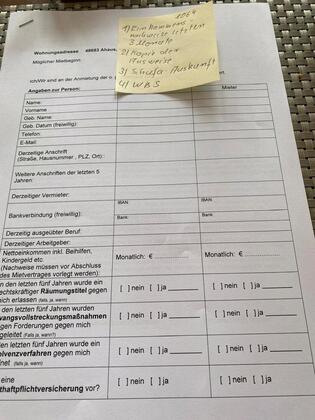 1064
1) Einkommens
nachweise letzten
3 Monate
2) Kopie der
Ausweise
3) Schufa Auskunft
4) WBS
Wohnungsadresse 48683 Ahaus,
Möglicher Mietbeginn:
Ich/Wir sind an der Anmietung der o.
Angaben zur Person:
Mieter
Name:
Vorname
Geb. Name:
Geb. Datum (freiwillig):
Telefon:
E-Mail:
Derzeitige Anschrift
(Straße, Hausnummer, PLZ, Ort):
Weitere Anschriften der letzten 5
Jahren:
Derzeitiger Vermieter:
Bankverbindung (freiwillig):
IBAN: IBAN:
Bank: Bank:
Derzeitig ausgeübter Beruf:
Derzeitiger Arbeitgeber:
Nettoeinkommen inkl. Beihilfen,
Kindergeld etc.
(Nachweise müssen vor Abschluss
des Mietvertrages vorlegt werden):
Monatlich: € Monatlich: €
den letzten fünf Jahren wurde ein
echtskräftiger Räumungstitel gegen
mich erlassen (falls ja, wann?)
[ ] nein [ ] ja [ ] nein [ ] ja
den letzten fünf Jahren wurden
wangsvollstreckungsmaßnahmen
gen Forderungen gegen mich
geleitet (Falls ja, wann?)
[ ] nein [ ] ja [ ] nein [ ] ja
den letzten fünf Jahren wurde ein
olvenzverfahren gegen mich
fnet (falls ja, wann?)
[ ] nein [ ] ja [ ] nein [ ] ja
eine
thaftpflichtversicherung vor?
[ ] nein [ ] ja [ ] nein [ ] ja